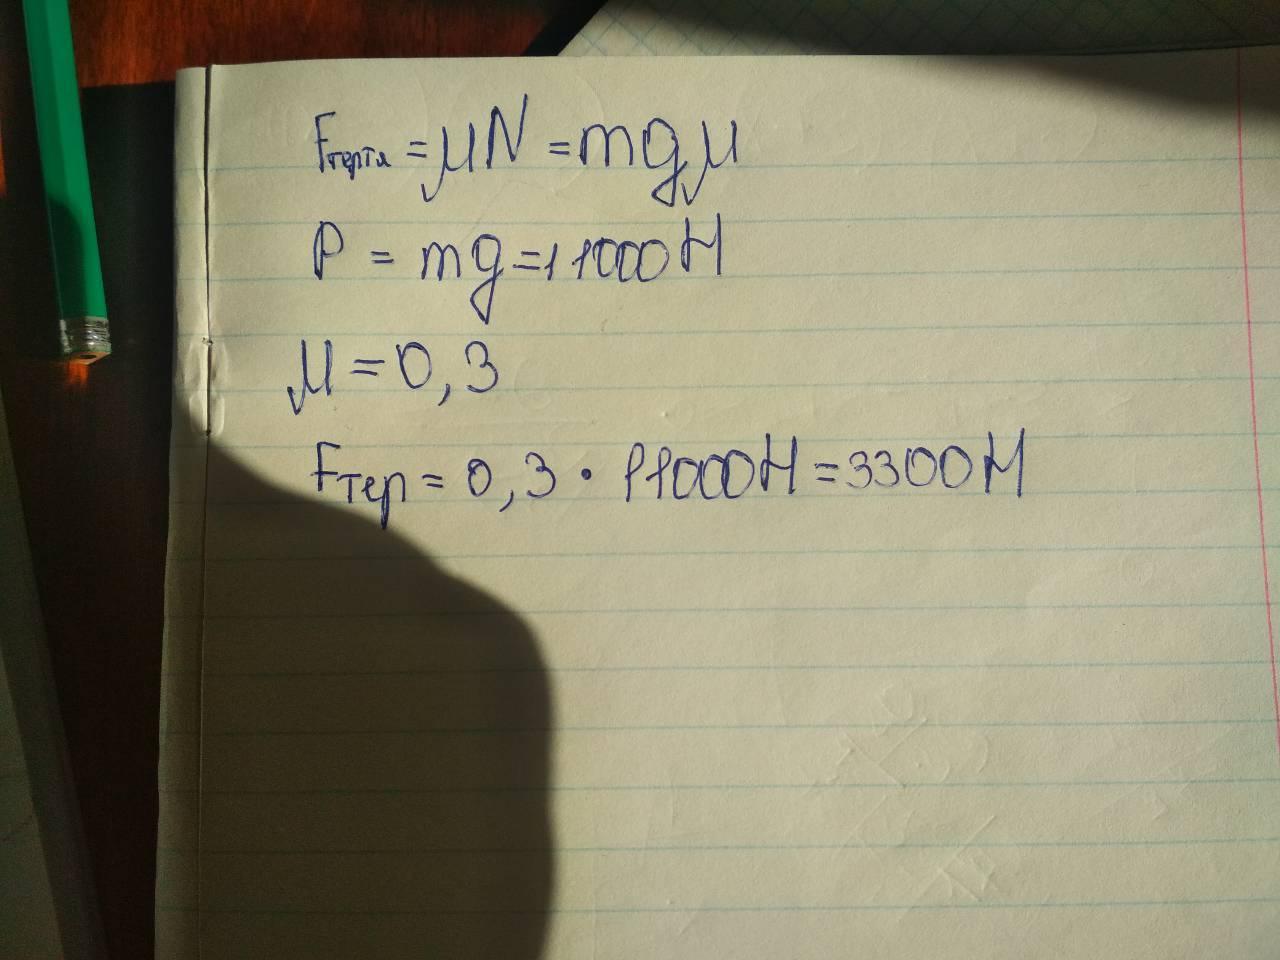 Fтертя = μN = mgμ
P = mg = 11000H
μ = 0,3
Fтер = 0,3 · 11000H = 3300H